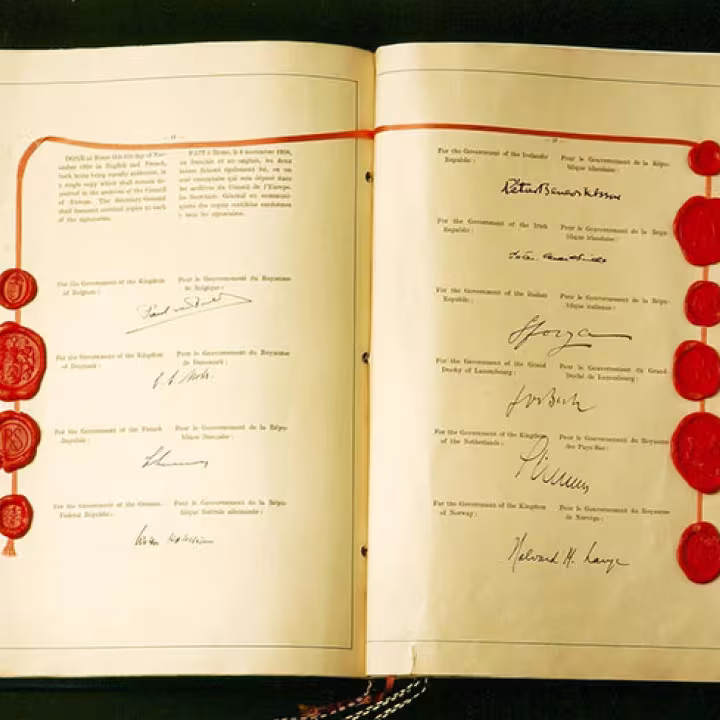 DONE at Rome this 4th day of No-
vember 1950 in English and French,
both texts being equally authentic, in
a single copy which shall remain de-
posited in the archives of the Council
of Europe. The Secretary-General
shall transmit certified copies to each
of the signatories.
FAIT à Rome, le 4 novembre 1950,
en français et en anglais, les deux
textes faisant également foi, en un
seul exemplaire qui sera déposé dans
les archives du Conseil de l'Europe.
Le Secrétaire Général en communi-
quera des copies certifiées conformes
à tous les signataires.
For the Government of the Kingdom
of Belgium:
Pour le Gouvernement du Royaume
de Belgique:
For the Government of the Kingdom
of Denmark:
Pour le Gouvernement du Royaume
de Danemark:
For the Government of the French
Republic:
Pour le Gouvernement de la Répu-
blique française:
For the Government of the German
Federal Republic:
Pour le Gouvernement de la Répu-
blique fédérale allemande:
For the Government of the Icelandic
Republic:
Pour le Gouvernement de la Répu-
blique islandaise:
For the Government of the Irish
Republic:
Pour le Gouvernement de la Répu-
blique irlandaise:
For the Government of the Italian
Republic:
Pour le Gouvernement de la Répu-
blique italienne:
Sforza
For the Government of the Grand
Duchy of Luxembourg:
Pour le Gouvernement du Grand
Duché de Luxembourg:
For the Government of the Kingdom
of the Netherlands:
Pour le Gouvernement du Royaume
des Pays-Bas:
For the Government of the Kingdom
of Norway:
Pour le Gouvernement du Royaume
de Norvège:
Halvard M. Lange